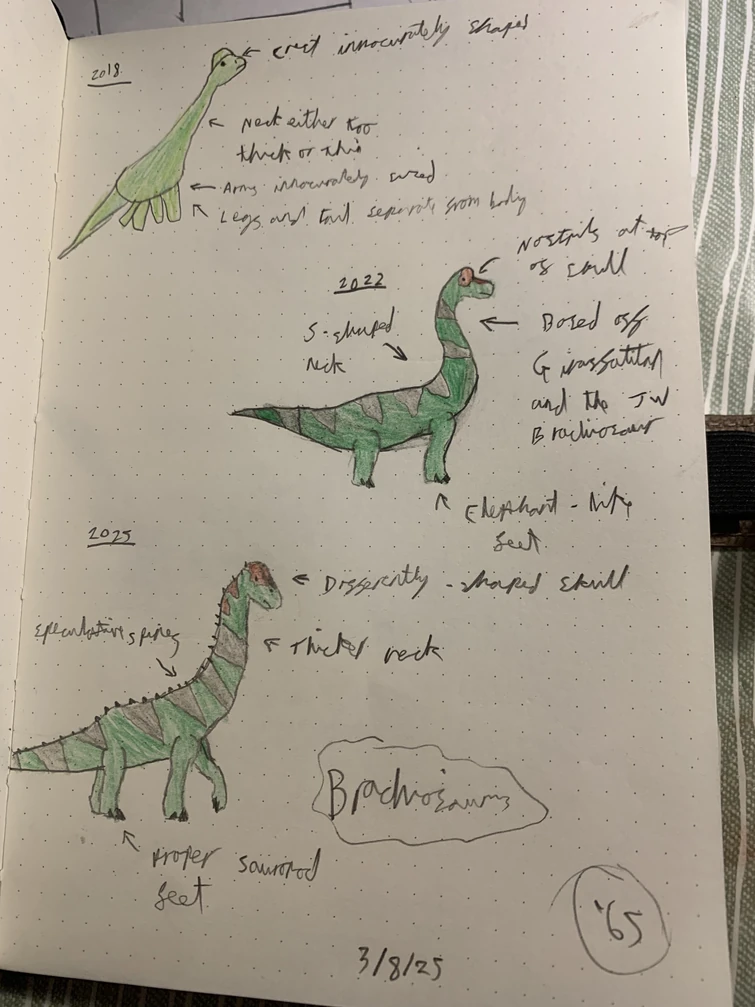 2018
← Crest innacurately shaped
← Neck either too
thick or thin
← Arms innacurately sized
← Legs and tail separate from body
Nostrils at top
of skull
2022
S-shaped
Neck
← Based off
Giraffatitan
and the JW
Brachiosaur
Elephant-like
feet
2025
← Differently-shaped skull
Speculative spines
← Thicker neck
Brachiosaurus
Proper sauropod
feet
'65
3/8/25